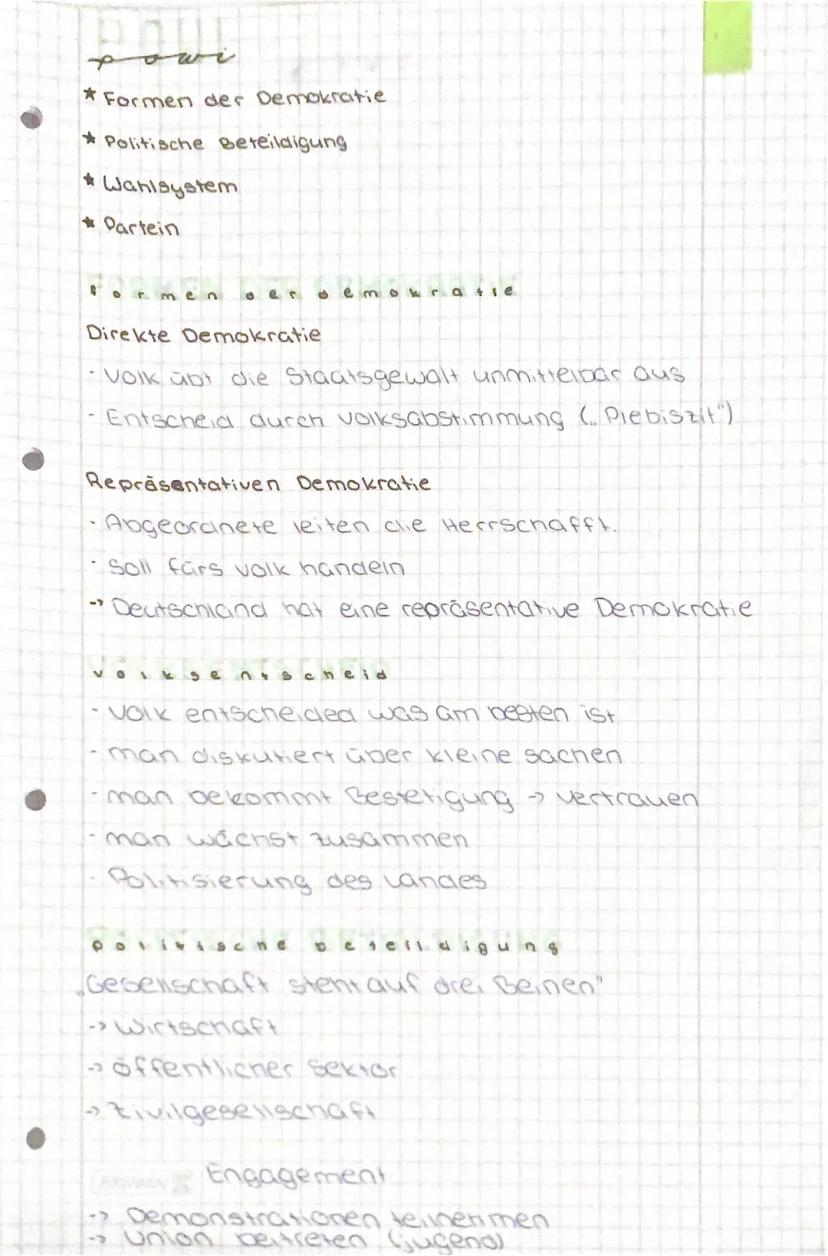 powi
* Formen der Demokratie
* Politische Beteildigung
* Wahlsystem
* Partein
Formen der Demokratie
Direkte Demokratie
- Volk übt die Staatsgewalt unmittelbar aus
- Entscheid durch Volksabstimmung („Plebiszit")
Repräsentativen Demokratie
- Abgeordnete leiten die Herrschafft.
- Soll fürs Volk handeln
-> Deutschland hat eine repräsentative Demokratie
Volksentscheid
- Volk entscheided was am besten ist
- man diskutiert über kleine sachen
- man bekommt Bestetigung -> vertrauen
- man wächst zusammen
- Politisierung des Landes
politische beteildigung
„Gesellschaft steht auf drei Beinen"
-> Wirtschaft
-> öffentlicher Sektor
-> Zivilgesellschaft
Engagement
-> Demonstrationen teilnehmen
-> Union beitreten (jugend)